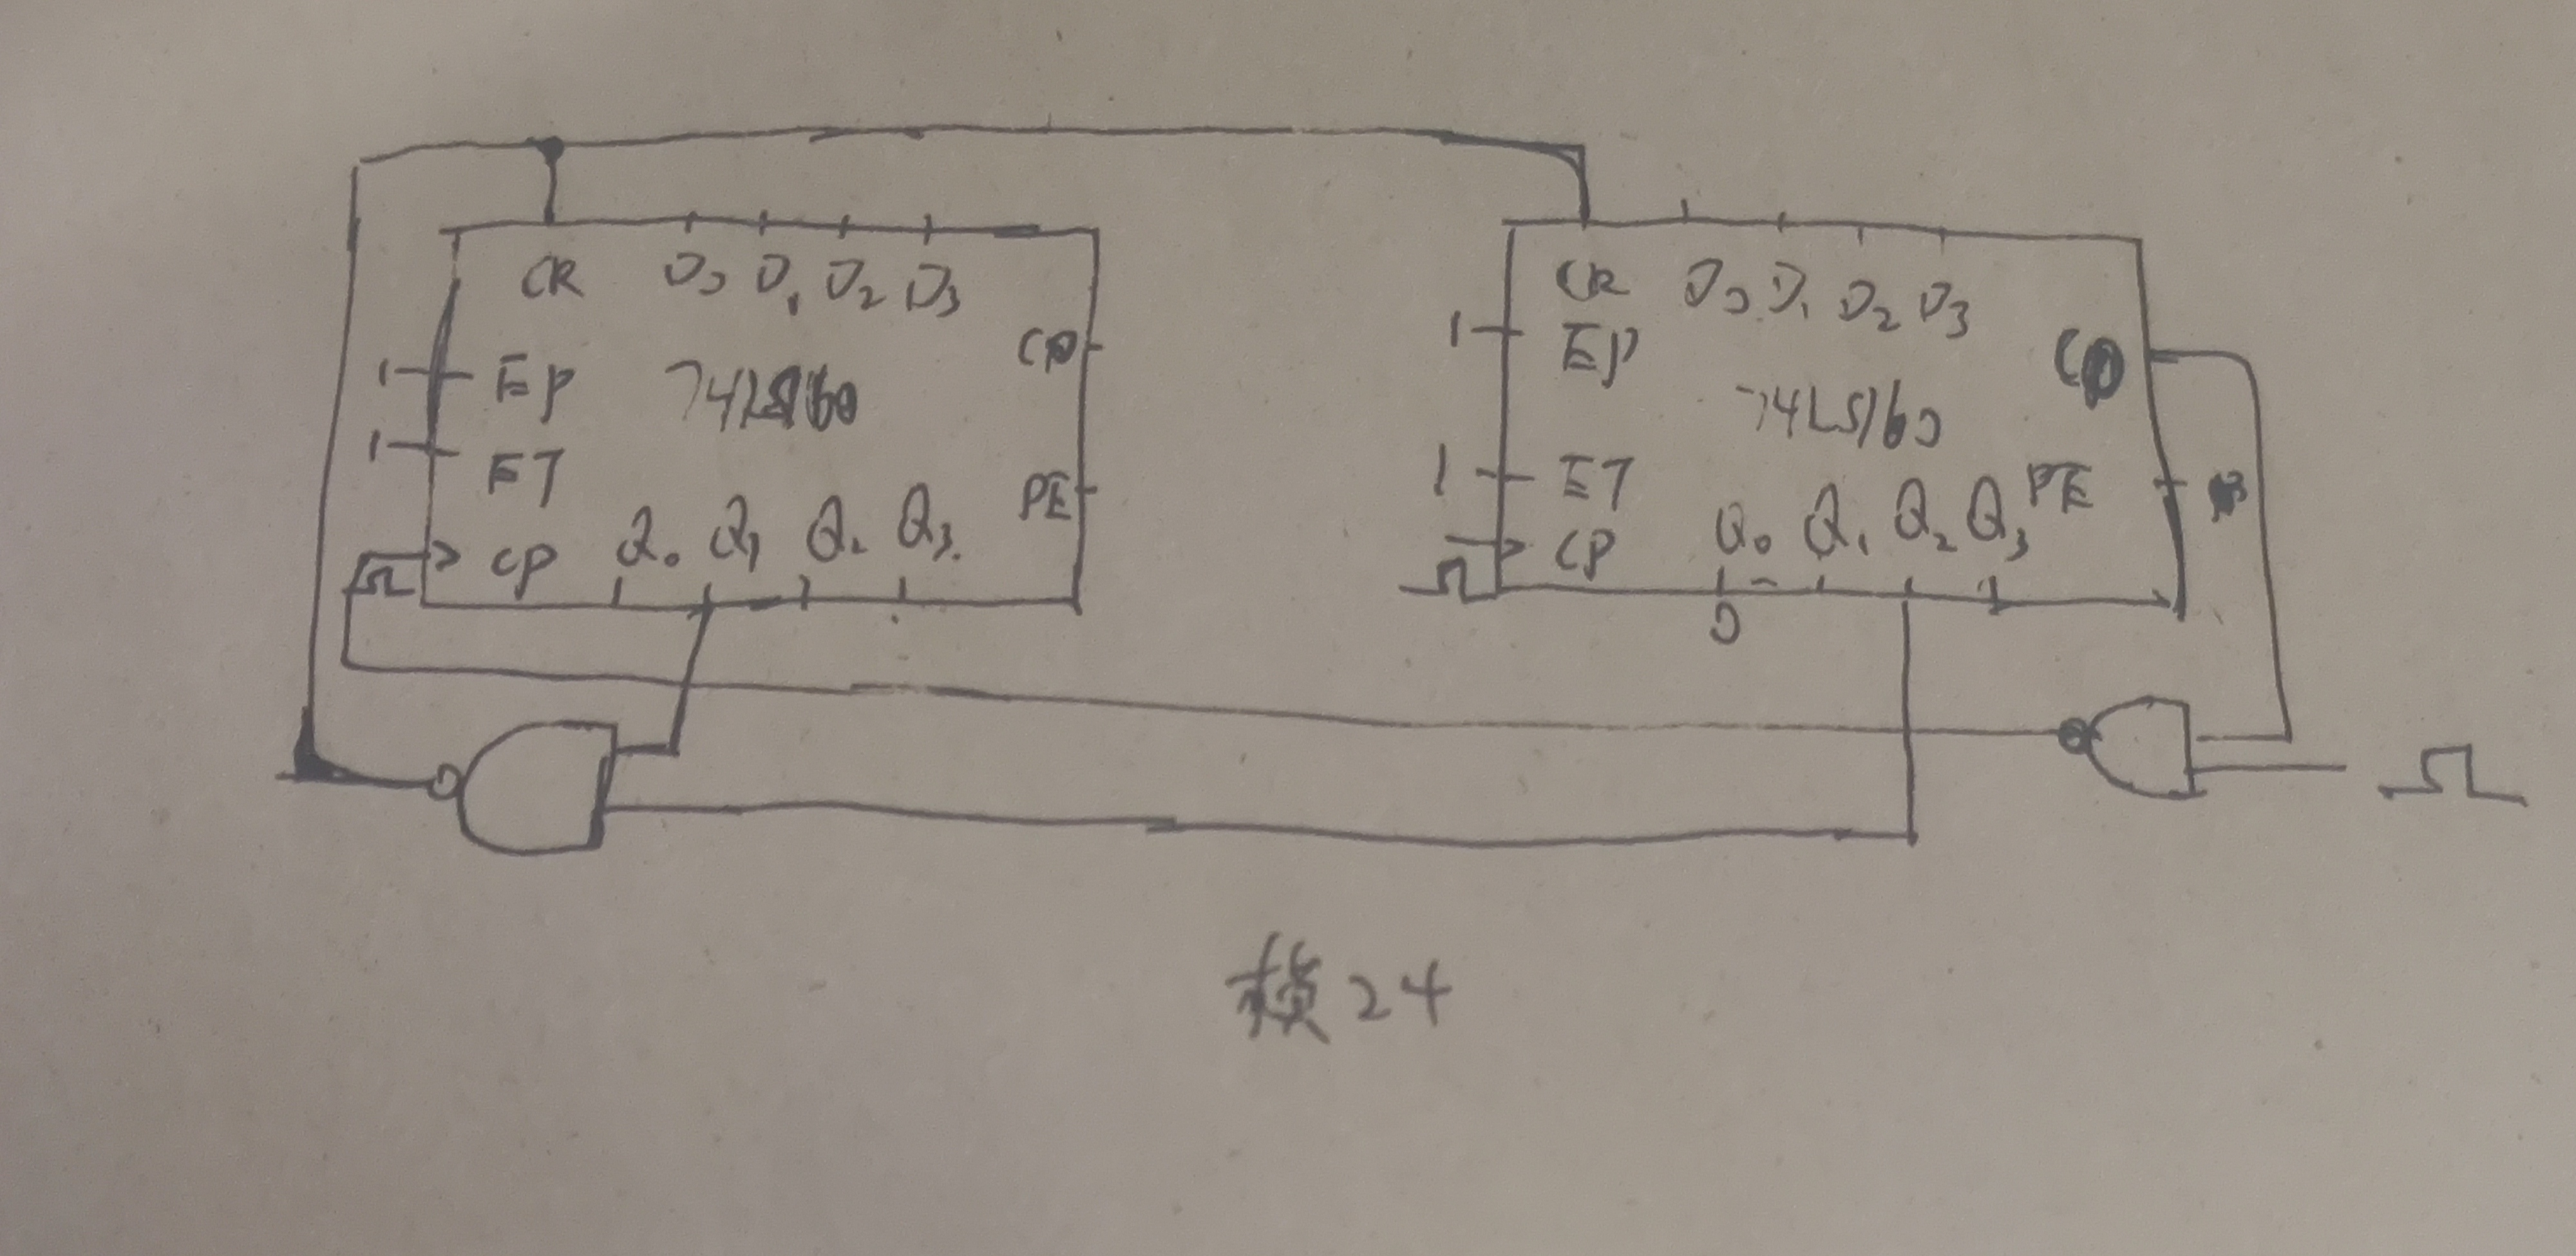 CR D0 D1 D2 D3
CO
1 EP 74LS160
1 ET
PE
CP Q0 Q1 Q2 Q3
CR D0 D1 D2 D3
1 EP
CO
74LS160
1 ET
PE
CP Q0 Q1 Q2 Q3
0
模24